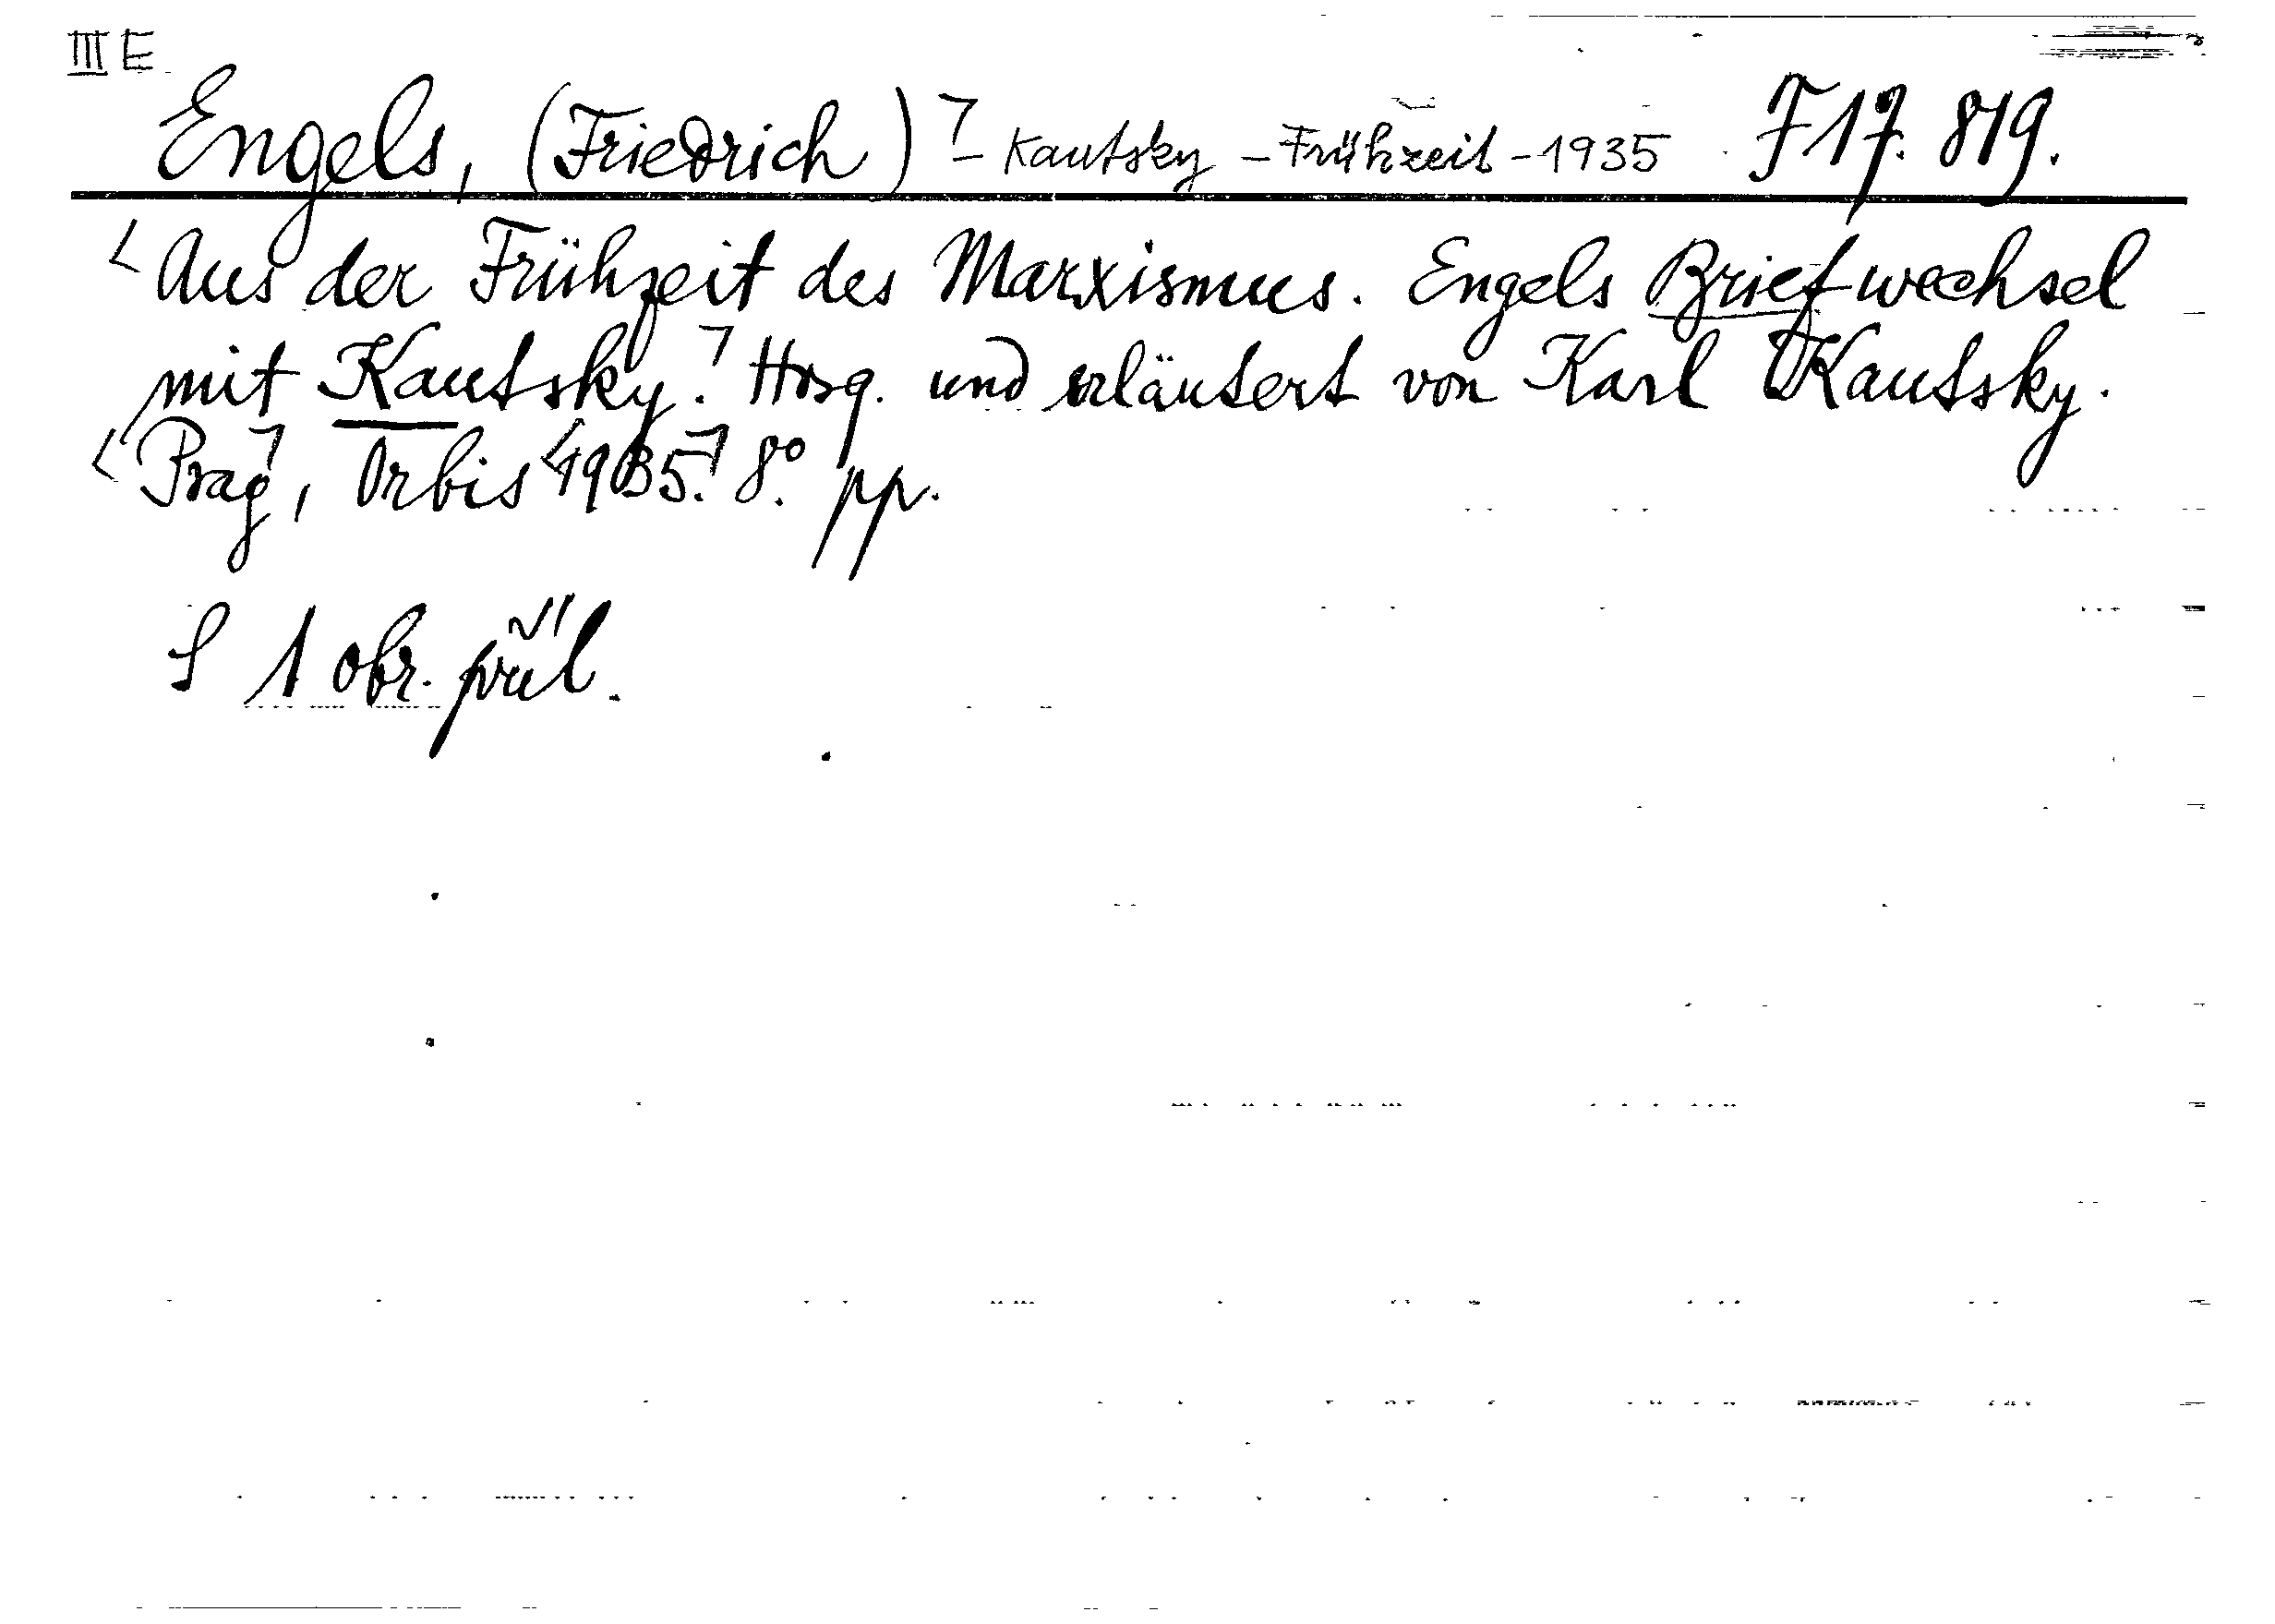 III E
Engels, (Friedrich) - Kautsky - Frühzeit - 1935 F 17.819.
Aus der Frühzeit des Marxismus. Engels Briefwechsel
mit Kautsky. Hrsg. und erläutert von Karl Kautsky.
Prag, Orbis 1935. 8° pp.
S 1 obr. příl.